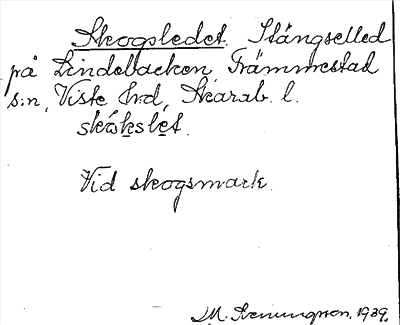 Skogsledet. Stängselled
på Lindebacken, Främmestad
s:n, Viste hd, Skarab. l.
skókslet.
Vid skogsmark.
1939.